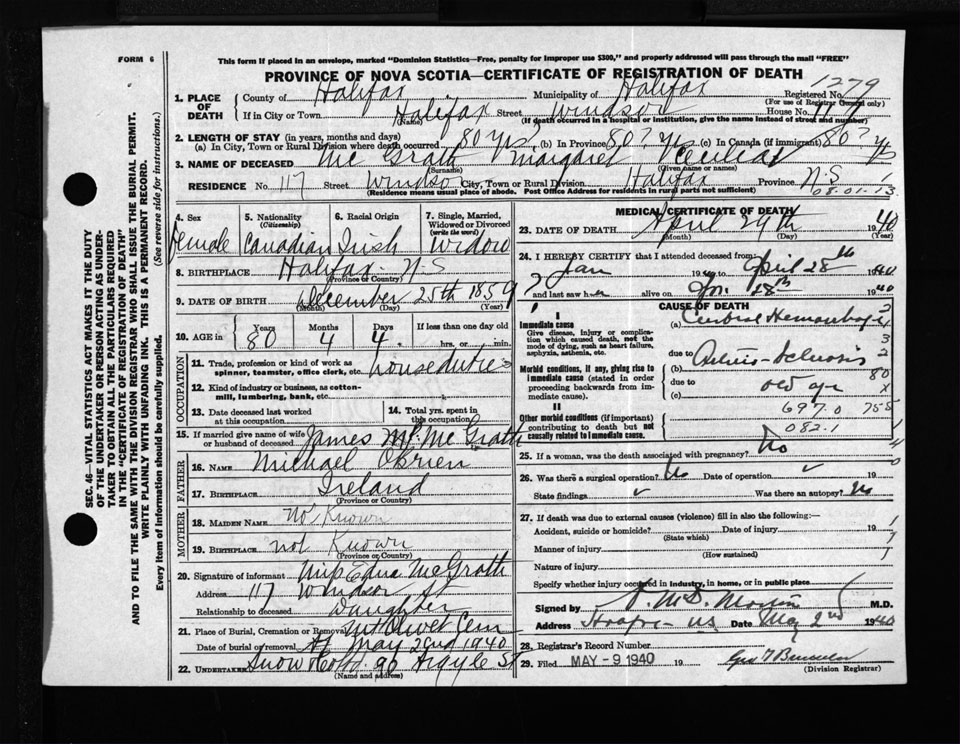 FORM 6
This form if placed in an envelope, marked "Dominion Statistics—Free, penalty for improper use $300," and properly addressed will pass through the mail "FREE"
PROVINCE OF NOVA SCOTIA—CERTIFICATE OF REGISTRATION OF DEATH
1. PLACE OF DEATH
County of Halifax Municipality of Halifax Registered No. 1279
(For use of Registrar General only)
If in City or Town Halifax Street Windsor House No. 117
(Name) (If death occurred in a hospital or institution, give the name instead of street and number)
2. LENGTH OF STAY (in years, months and days)
(a) In City, Town or Rural Division where death occurred 80 yrs, (b) In Province 80? yrs (c) In Canada (if immigrant) 80? yrs
3. NAME OF DECEASED Mc Grath Margaret Cecilia
(Surname) (Given name or names)
RESIDENCE No. 117 Street Windsor City, Town or Rural Division Halifax Province N.S
(Residence means usual place of abode. Post Office Address for residents in rural parts not sufficient) 08.01.13
4. Sex
Female
5. Nationality
(Citizenship)
Canadian
6. Racial Origin
Irish
7. Single, Married, Widowed or Divorced
(write the word)
Widow
8. BIRTHPLACE Halifax N.S
(Province or Country)
9. DATE OF BIRTH December 25th 1859
(Month) (Day) (Year)
10. AGE in
Years Months Days If less than one day old
80 4 4. hrs. or min.
OCCUPATION
11. Trade, profession or kind of work as spinner, teamster, office clerk, etc. housduties
12. Kind of industry or business, as cotton-mill, lumbering, bank, etc.
13. Date deceased last worked at this occupation
14. Total yrs. spent in this occupation
15. If married give name of wife or husband of deceased James Mc Grath
FATHER
16. NAME Michael Obrien
17. BIRTHPLACE Ireland
(Province or Country)
MOTHER
18. MAIDEN NAME not Known
19. BIRTHPLACE not Known
(Province or Country)
20. Signature of informant Miss Edna McGrath
Address 117 Windsor St
Relationship to deceased Daughter
21. Place of Burial, Cremation or Removal Mt Olivet Cem
Date of burial or removal May 2nd 1940
22. UNDERTAKER Snow & Co. 90 Argyle St
(Name and Address)
MEDICAL CERTIFICATE OF DEATH
23. DATE OF DEATH April 29th 1940
(Month) (Day) (Year)
24. I HEREBY CERTIFY that I attended deceased from:
Jan 19 to April 28th 1940
and last saw her alive on 28th 1940
CAUSE OF DEATH
I
Immediate cause
Give disease, injury or complication which caused death, not the mode of dying, such as heart failure, asphyxia, asthenia, etc.
(a) Cerebral Hemorrhage
due to Arterio-Sclerosis
Morbid conditions, if any, giving rise to immediate cause (stated in order proceeding backwards from immediate cause).
(b)
due to old age 80
(c)
697.0 755
082.1
II
Other morbid conditions (if important) contributing to death but not causally related to immediate cause.
25. If a woman, was the death associated with pregnancy? No
26. Was there a surgical operation? No Date of operation 19
State findings Was there an autopsy? No
27. If death was due to external causes (violence) fill in also the following:
Accident, suicide or homicide? Date of injury 19
(State which)
Manner of injury
(How sustained)
Nature of injury
Specify whether injury occurred in industry, in home, or in public place
Signed by M.D.
Address Date May 2nd 1940
28. Registrar's Record Number
29. Filed MAY - 9 1940 19
(Division Registrar)
SEC. 46—VITAL STATISTICS ACT MAKES IT THE DUTY OF THE UNDERTAKER OR PERSON ACTING AS UNDERTAKER TO OBTAIN ALL THE PARTICULARS REQUIRED IN THE "CERTIFICATE OF REGISTRATION OF DEATH" AND TO FILE THE SAME WITH THE DIVISION REGISTRAR WHO SHALL ISSUE THE BURIAL PERMIT.
WRITE PLAINLY WITH UNFADING INK. THIS IS A PERMANENT RECORD.
Every item of information should be carefully supplied. (See reverse side for instructions.)